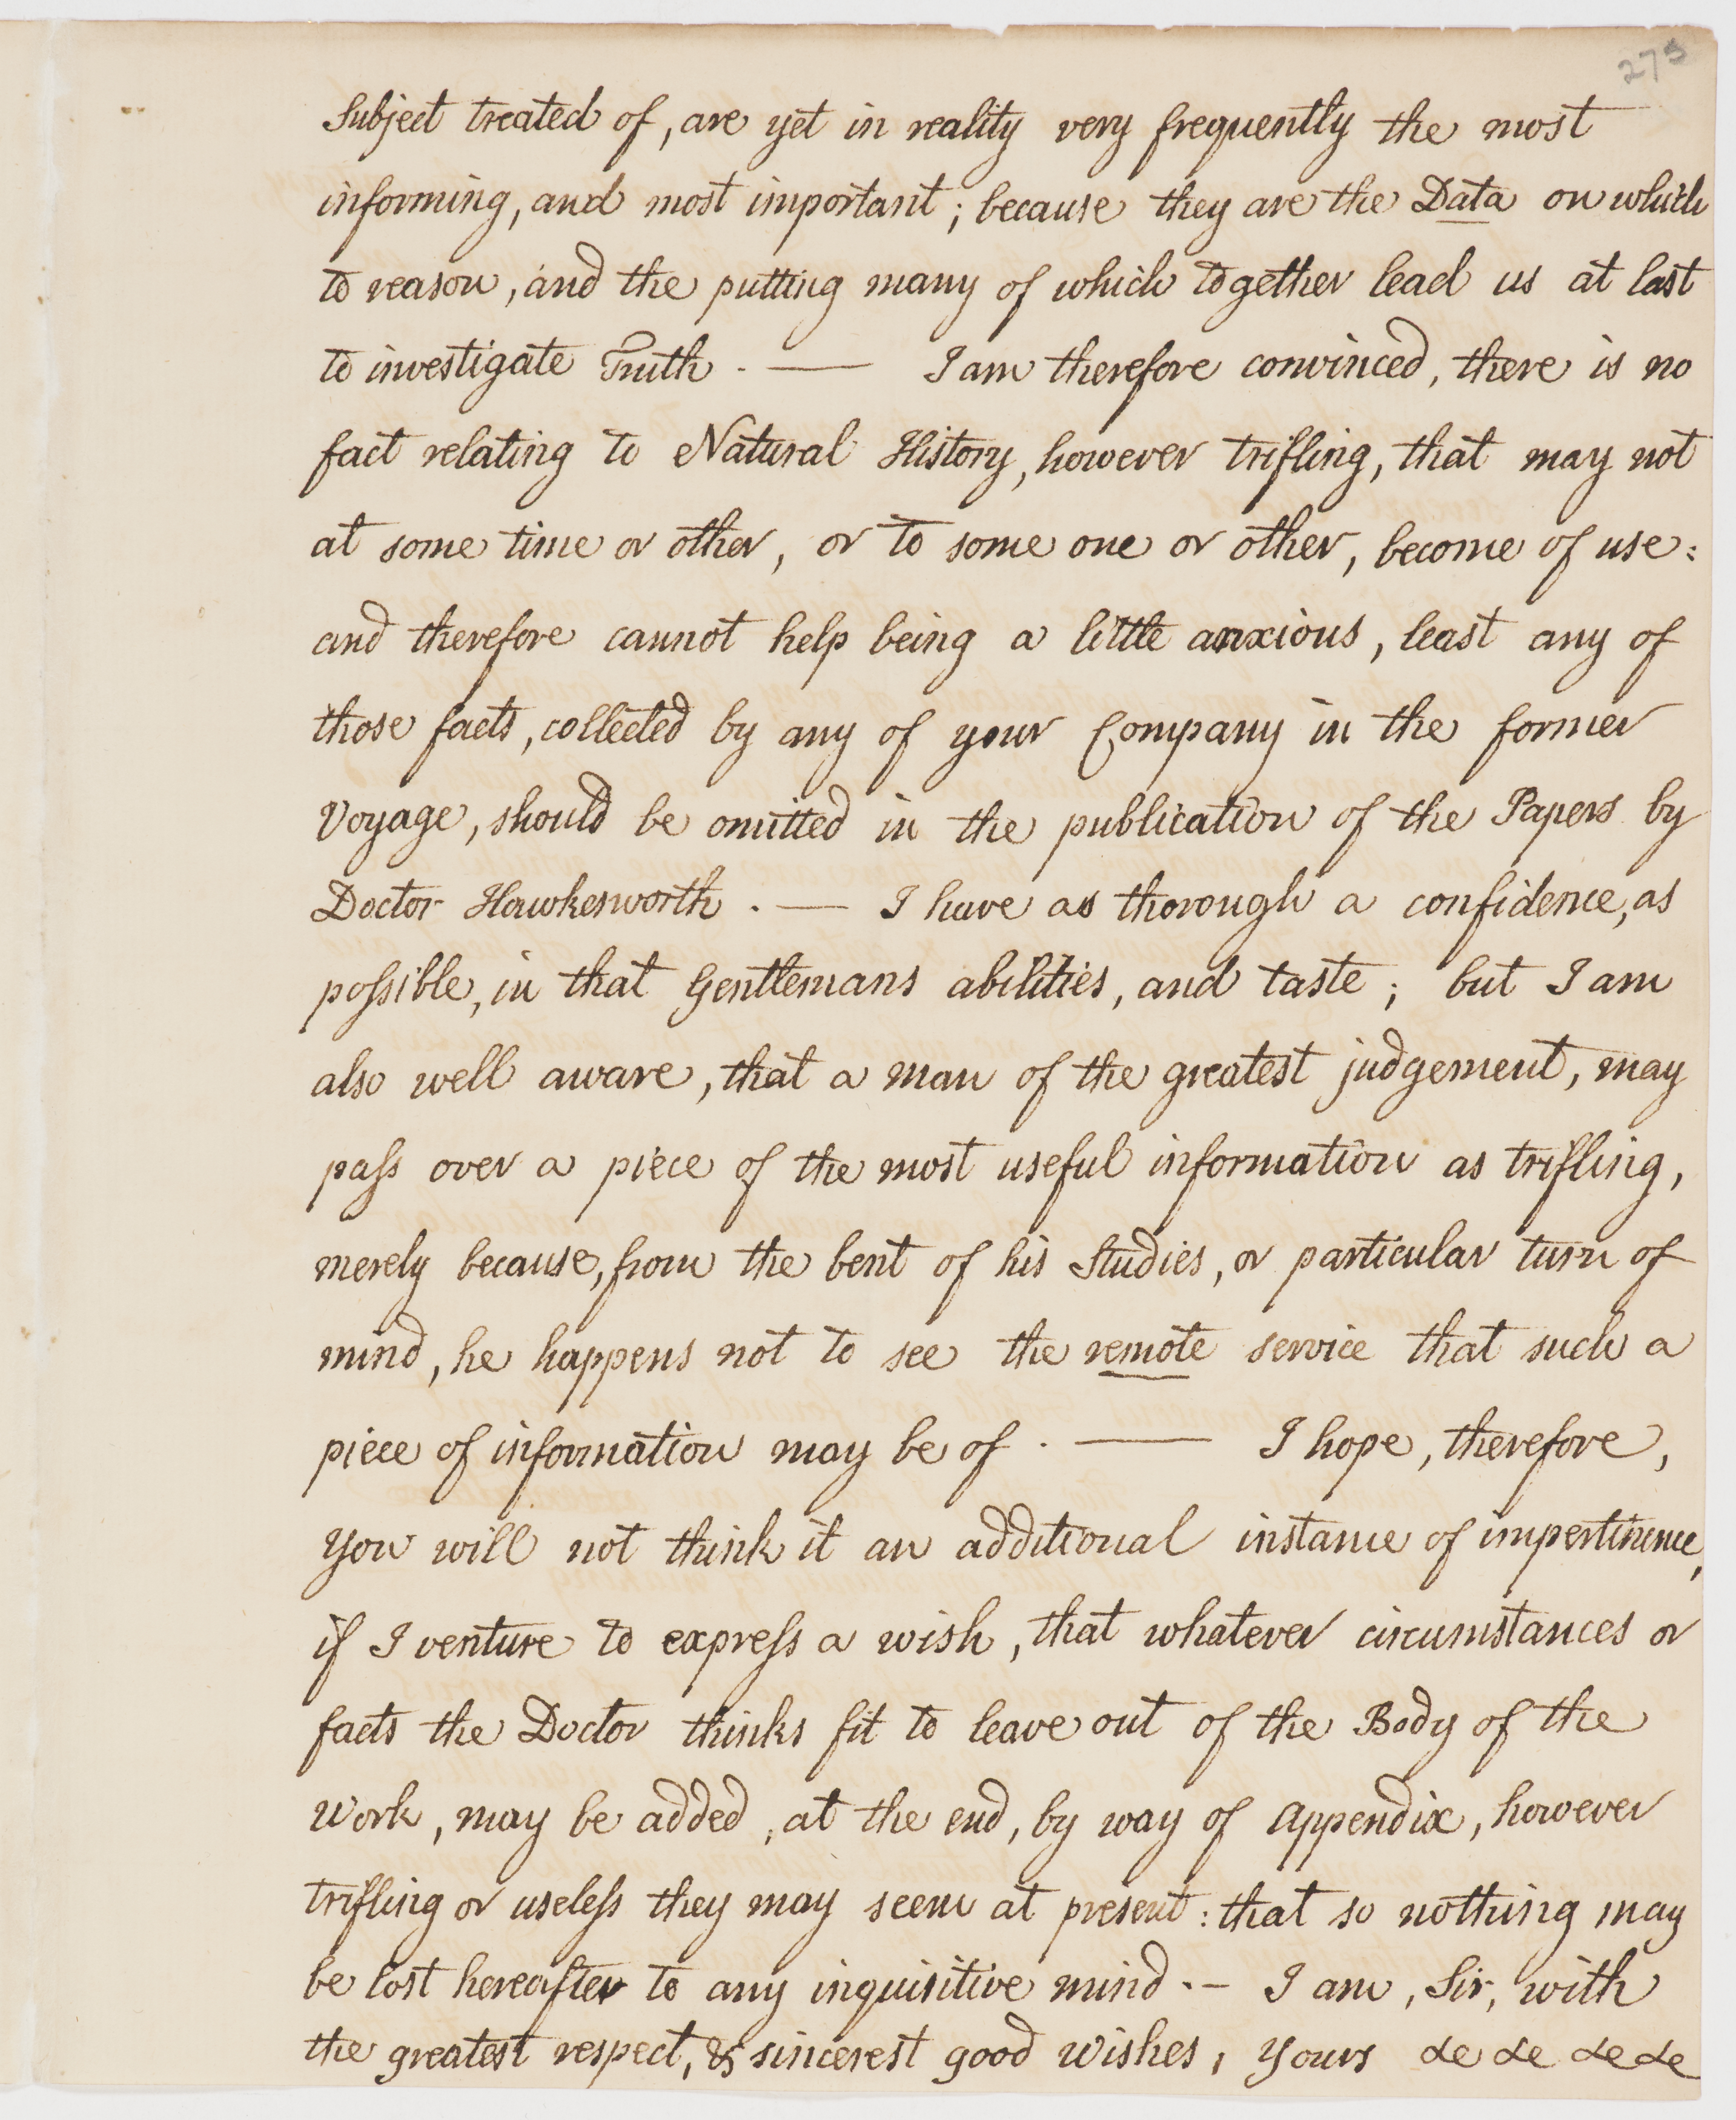 275
Subject treated of, are yet in reality very frequently the most
informing, and most important; because they are the Data on which
to reason, and the putting many of which together lead us at last
to investigate Truth. — I am therefore convinced, there is no
fact relating to Natural History, however trifling, that may not
at some time or other, or to some one or other, become of use:
and therefore cannot help being a little anxious, least any of
those facts, collected by any of your Company in the former
Voyage, should be omitted in the publication of the Papers by
Doctor Hawkesworth. — I have as thorough a confidence, as
possible, in that Gentlemans abilities, and taste; but I am
also well aware, that a man of the greatest judgement, may
pass over a piece of the most useful information as trifling,
merely because, from the bent of his Studies, or particular turn of
mind, he happens not to see the remote service that such a
piece of information may be of. — I hope, therefore,
you will not think it an additional instance of impertinence,
if I venture to express a wish, that whatever circumstances or
facts the Doctor thinks fit to leave out of the Body of the
Work, may be added, at the end, by way of Appendix, however
trifling or useless they may seem at present: that so nothing may
be lost hereafter to any inquisitive mind. — I am, Sir, with
the greatest respect, & sincerest good wishes, Yours &c &c &c &c